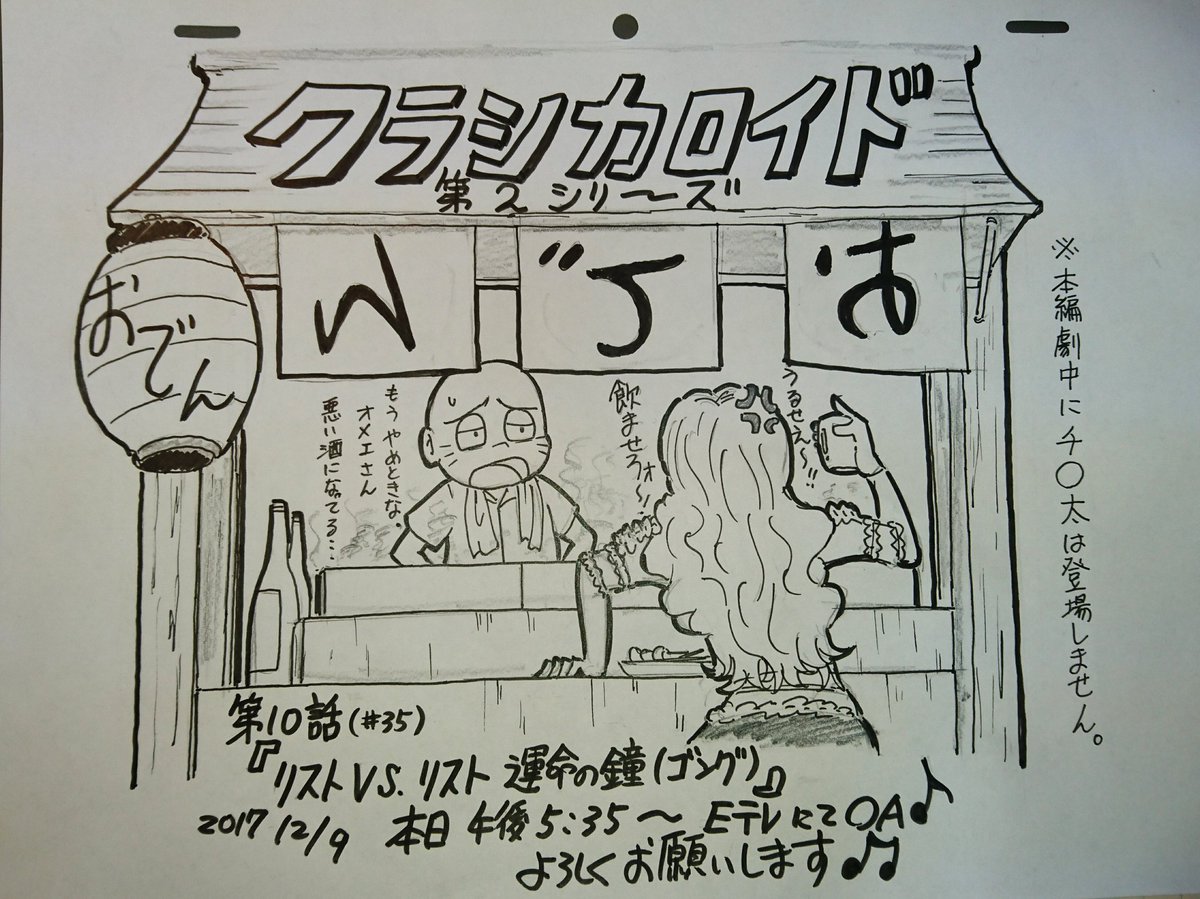 クラシカロイド
第2シリ～ズ
おでん
おでん
うるせえ～!!
飲ませろォ～!
もうやめときな。
オメエさん
悪い酒になってる…
※本編劇中にチ〇太は登場しません。
第10話(#35)
『リストVS.リスト 運命の鐘(ゴング)』
2017 12/9 本日 午後5:35～ EテレにてOA♪
よろしくお願いします♪♫